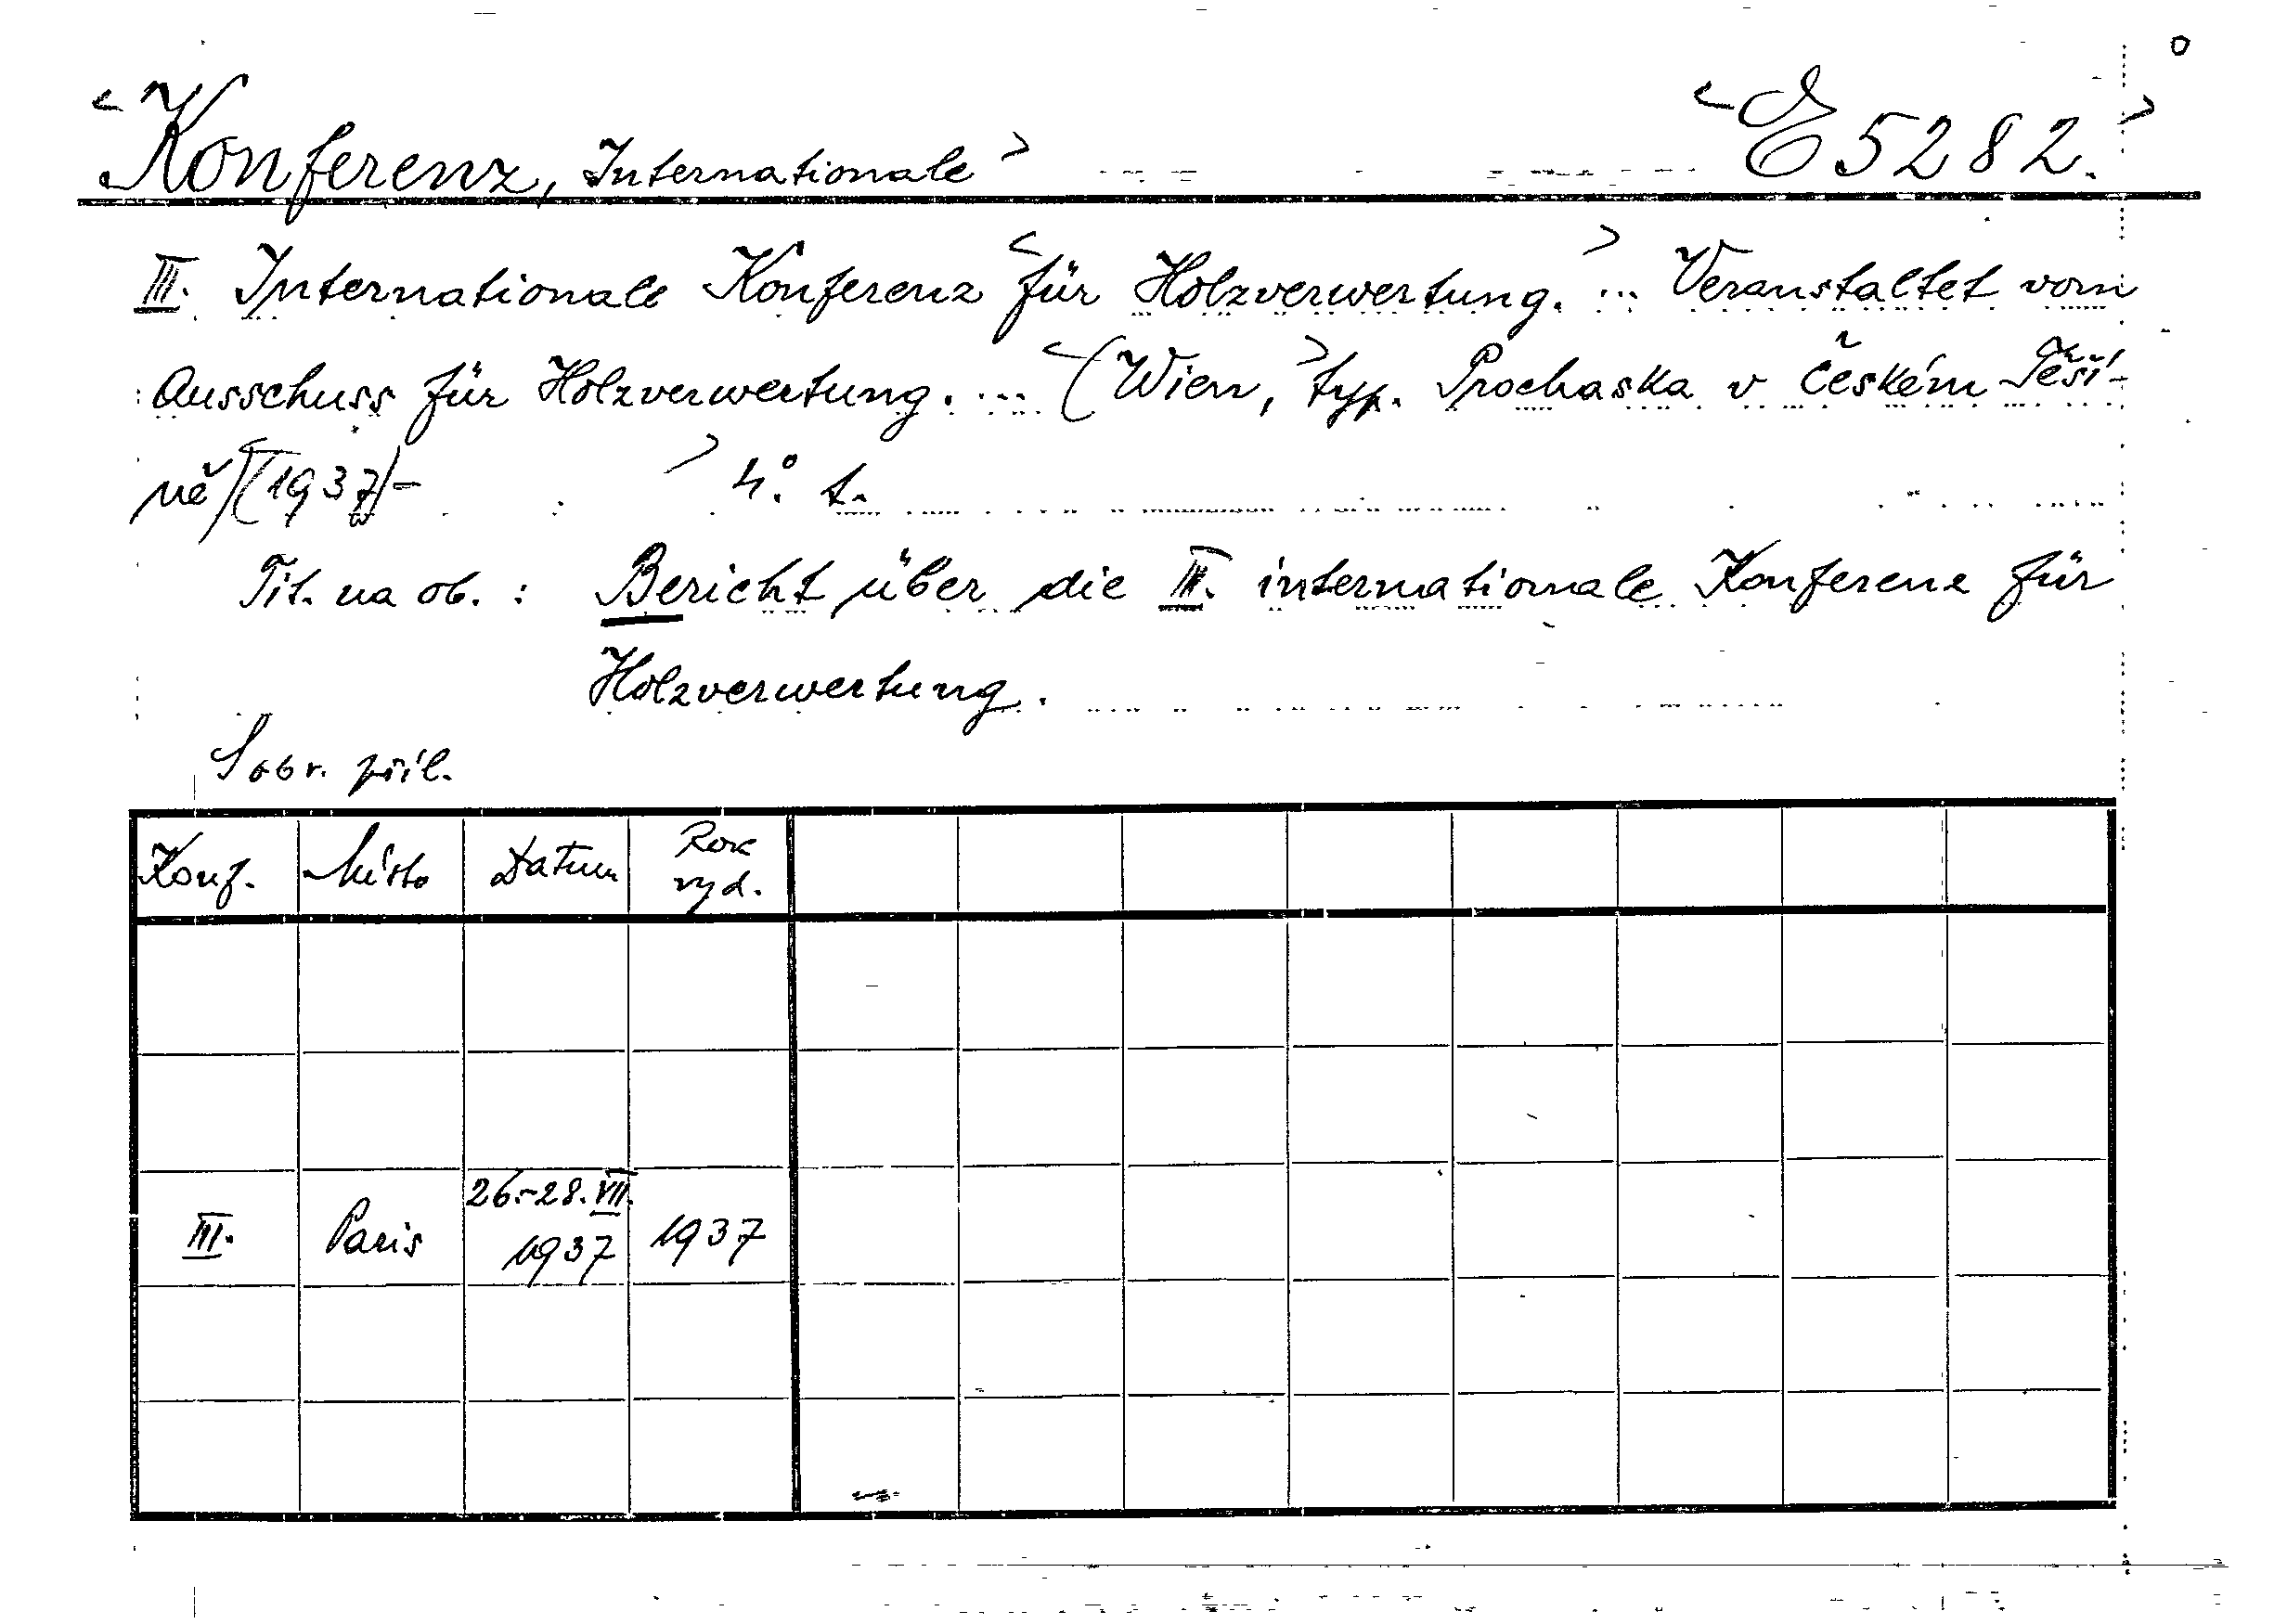 <Konferenz, Internationale> <E 5282.>
III. Internationale Konferenz <für Holzverwertung.> ... Veranstaltet vom
Ausschuss für Holzverwertung. ... <(Wien,> typ. Prochaska v Českém Těší-
ně) <(1937)- > 4°. t.
Tit. na ob.: Bericht über die III. internationale Konferenz für
Holzverwertung.
S obr. příl.
Konf. Místo Datum Rok vyd.
III. Paris 26.-28.VII. 1937 1937